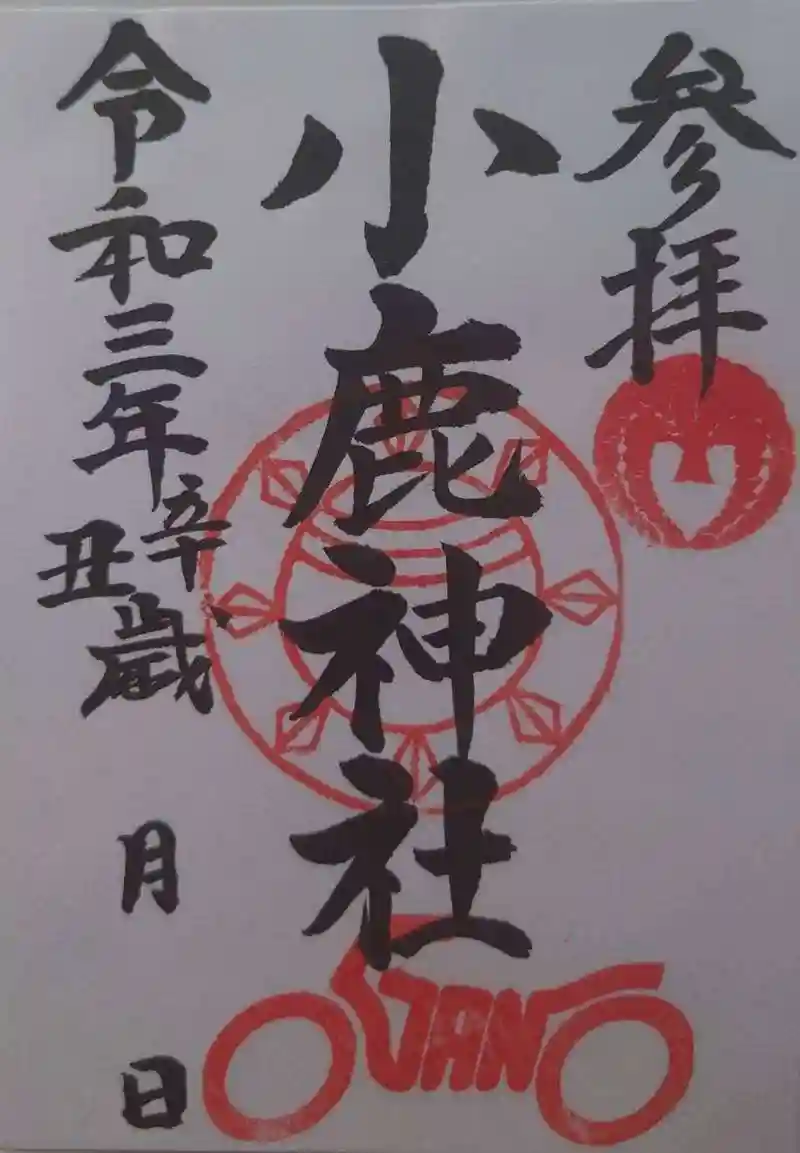 参拝
小鹿神社
令和三年辛丑歳 月 日
VAN